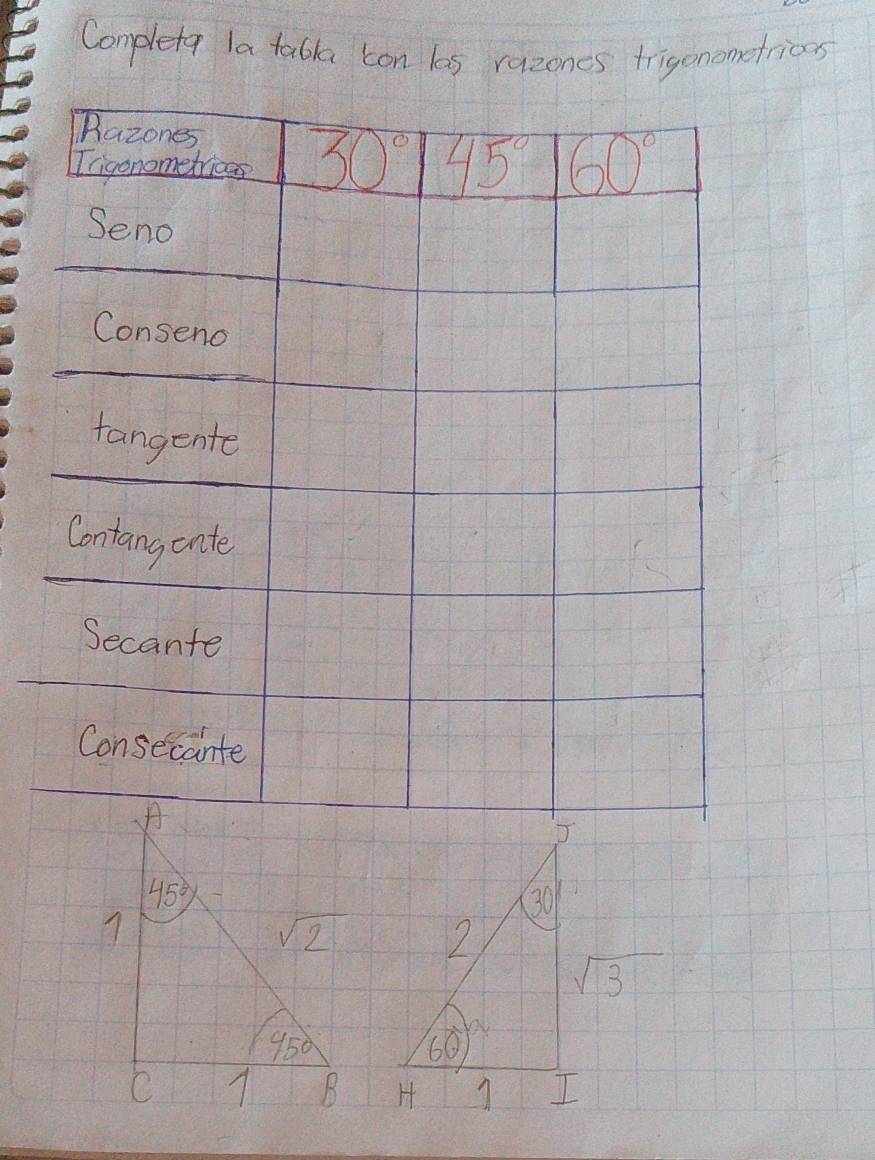 Completa la tabla con las razones trigonometricas
Razones 30° 45° 60°
Trigonometricas
Seno
Conseno
tangente
Contangente
Secante
Consecante
A J
45° 30
1 √2 2 √3
45° 60
C 1 B H 1 I